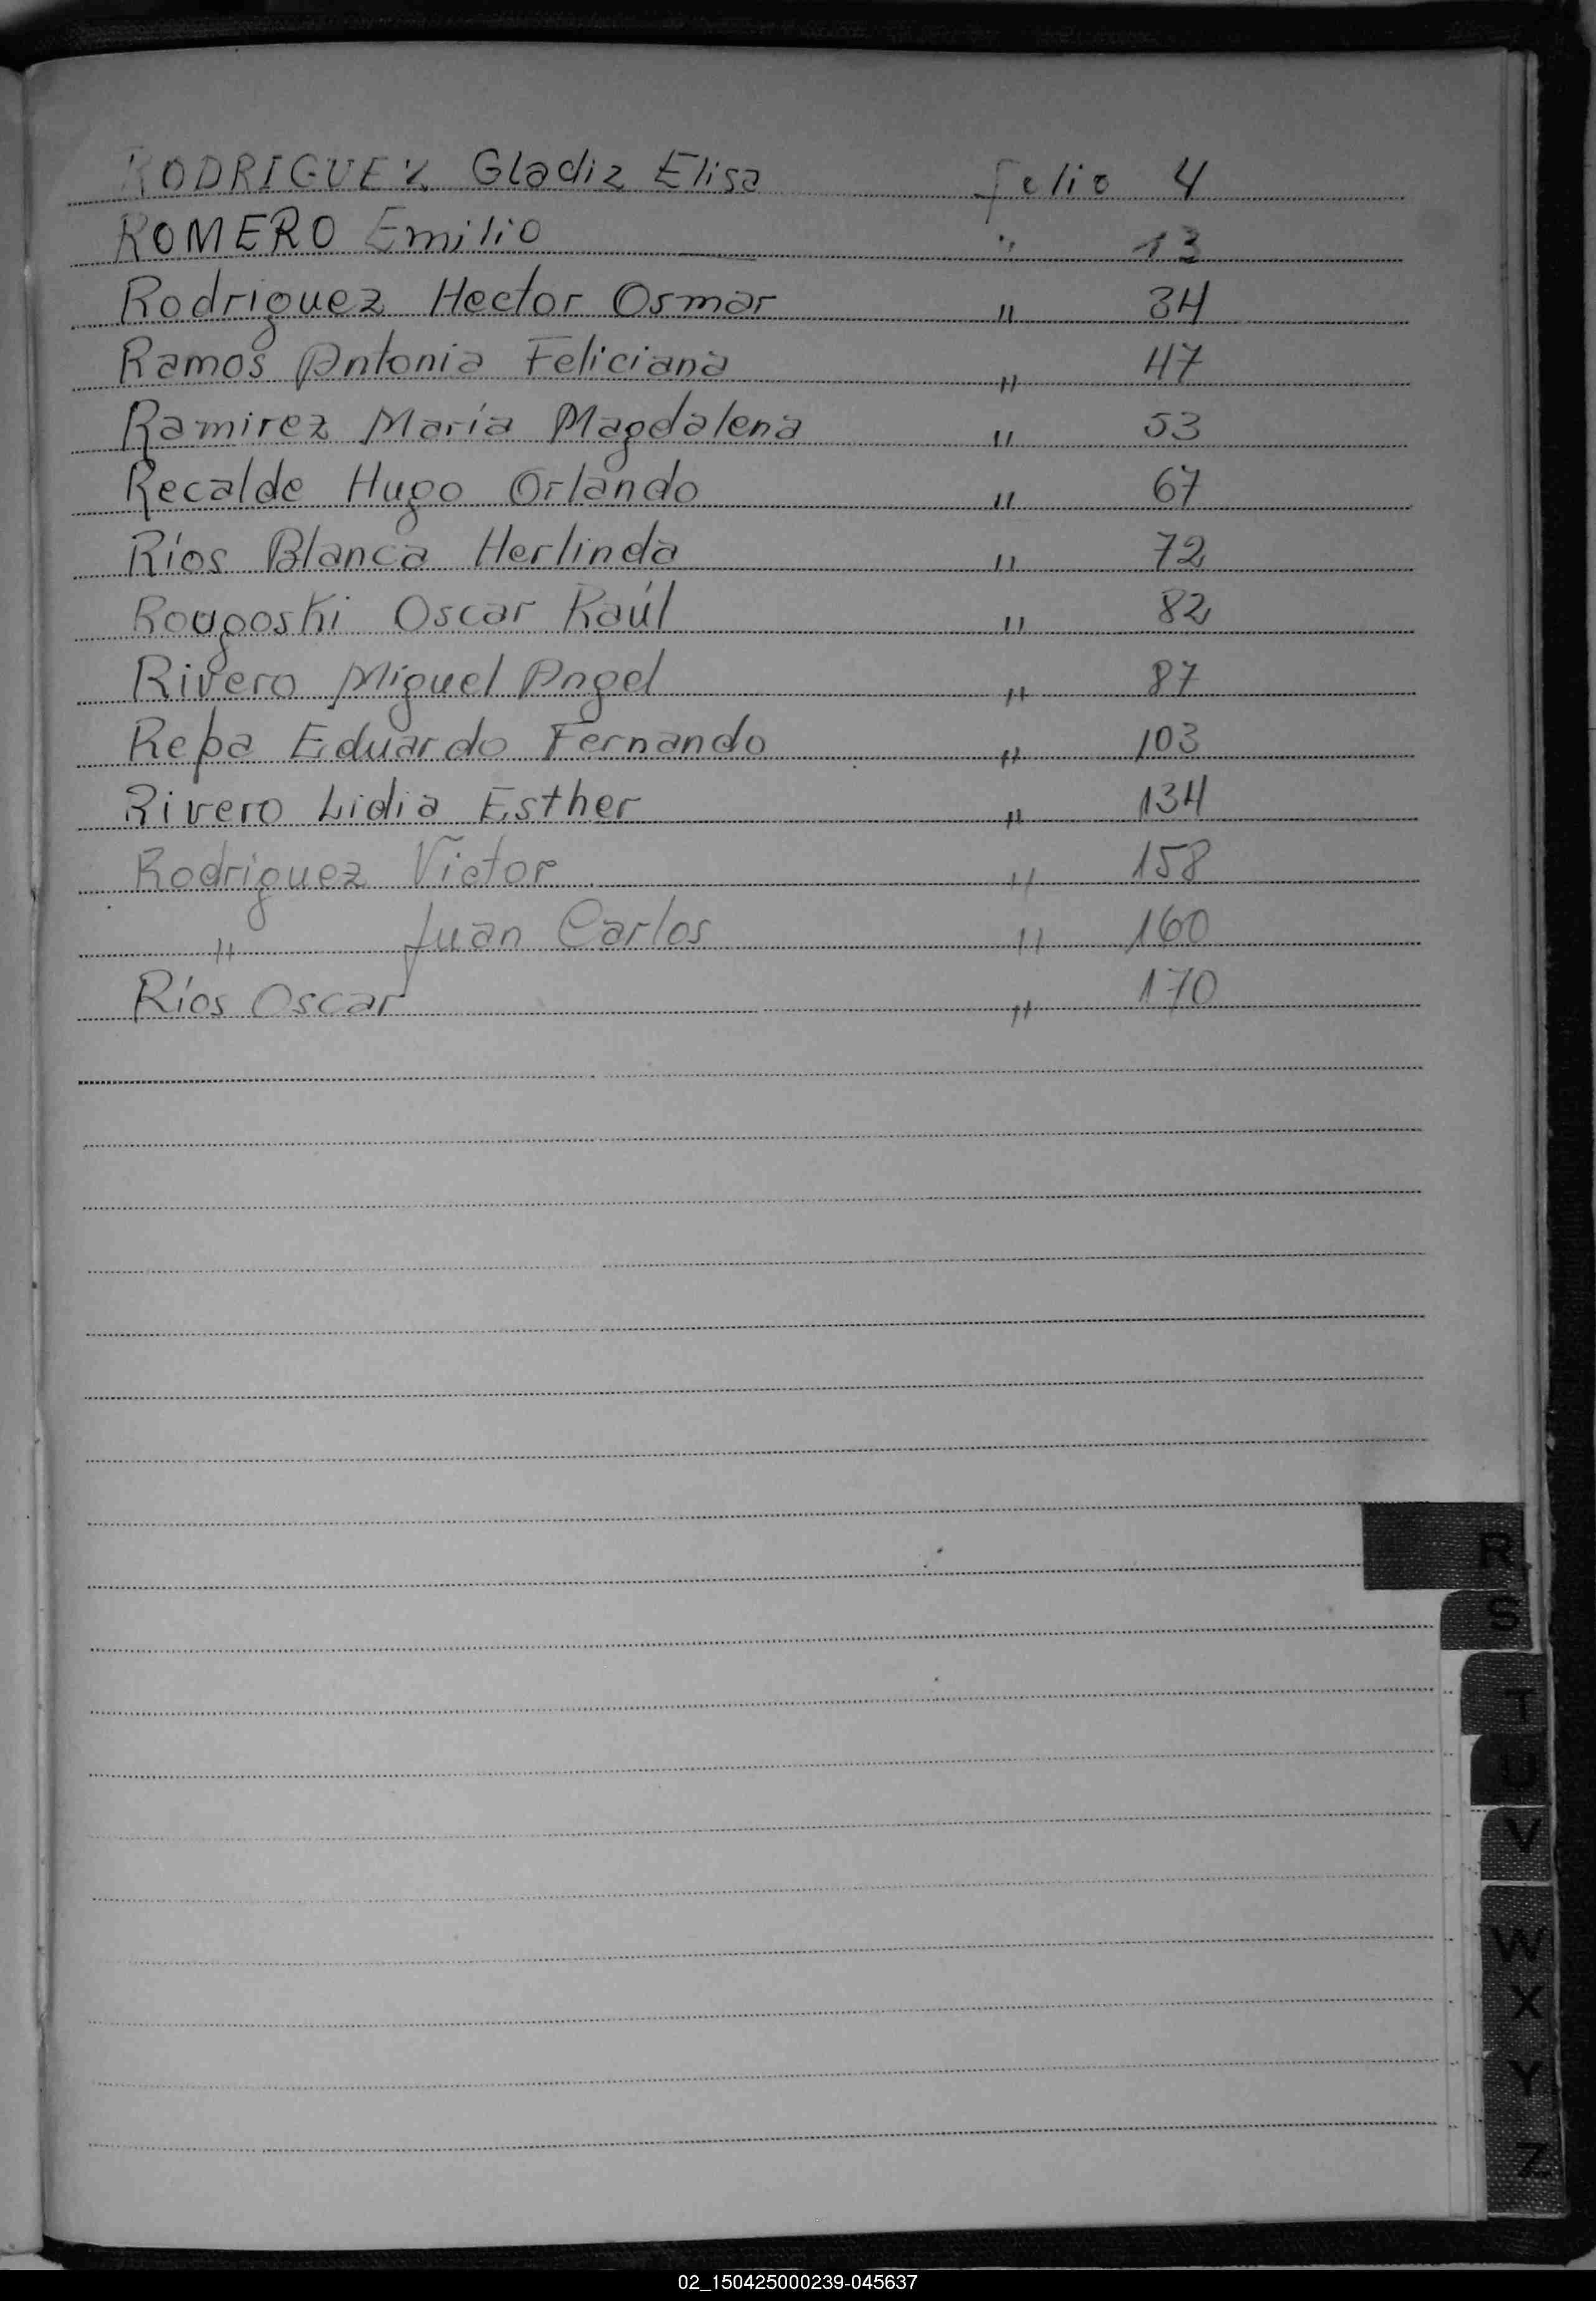 RODRIGUEZ Gladiz Elisa folio 4
ROMERO Emilio " 13
Rodriguez Hector Osmar " 34
Ramos Antonia Feliciana " 47
Ramirez María Magdalena " 53
Recalde Hugo Orlando " 67
Ríos Blanca Herlinda " 72
Rougoski Oscar Raúl " 82
Rivero Miguel Angel " 87
Repa Eduardo Fernando " 103
Rivero Lidia Esther " 134
Rodriguez Victor " 158
" Juan Carlos " 160
Ríos Oscar " 170
R
S
T
U
V
W
X
Y
Z
02_150425000239-045637